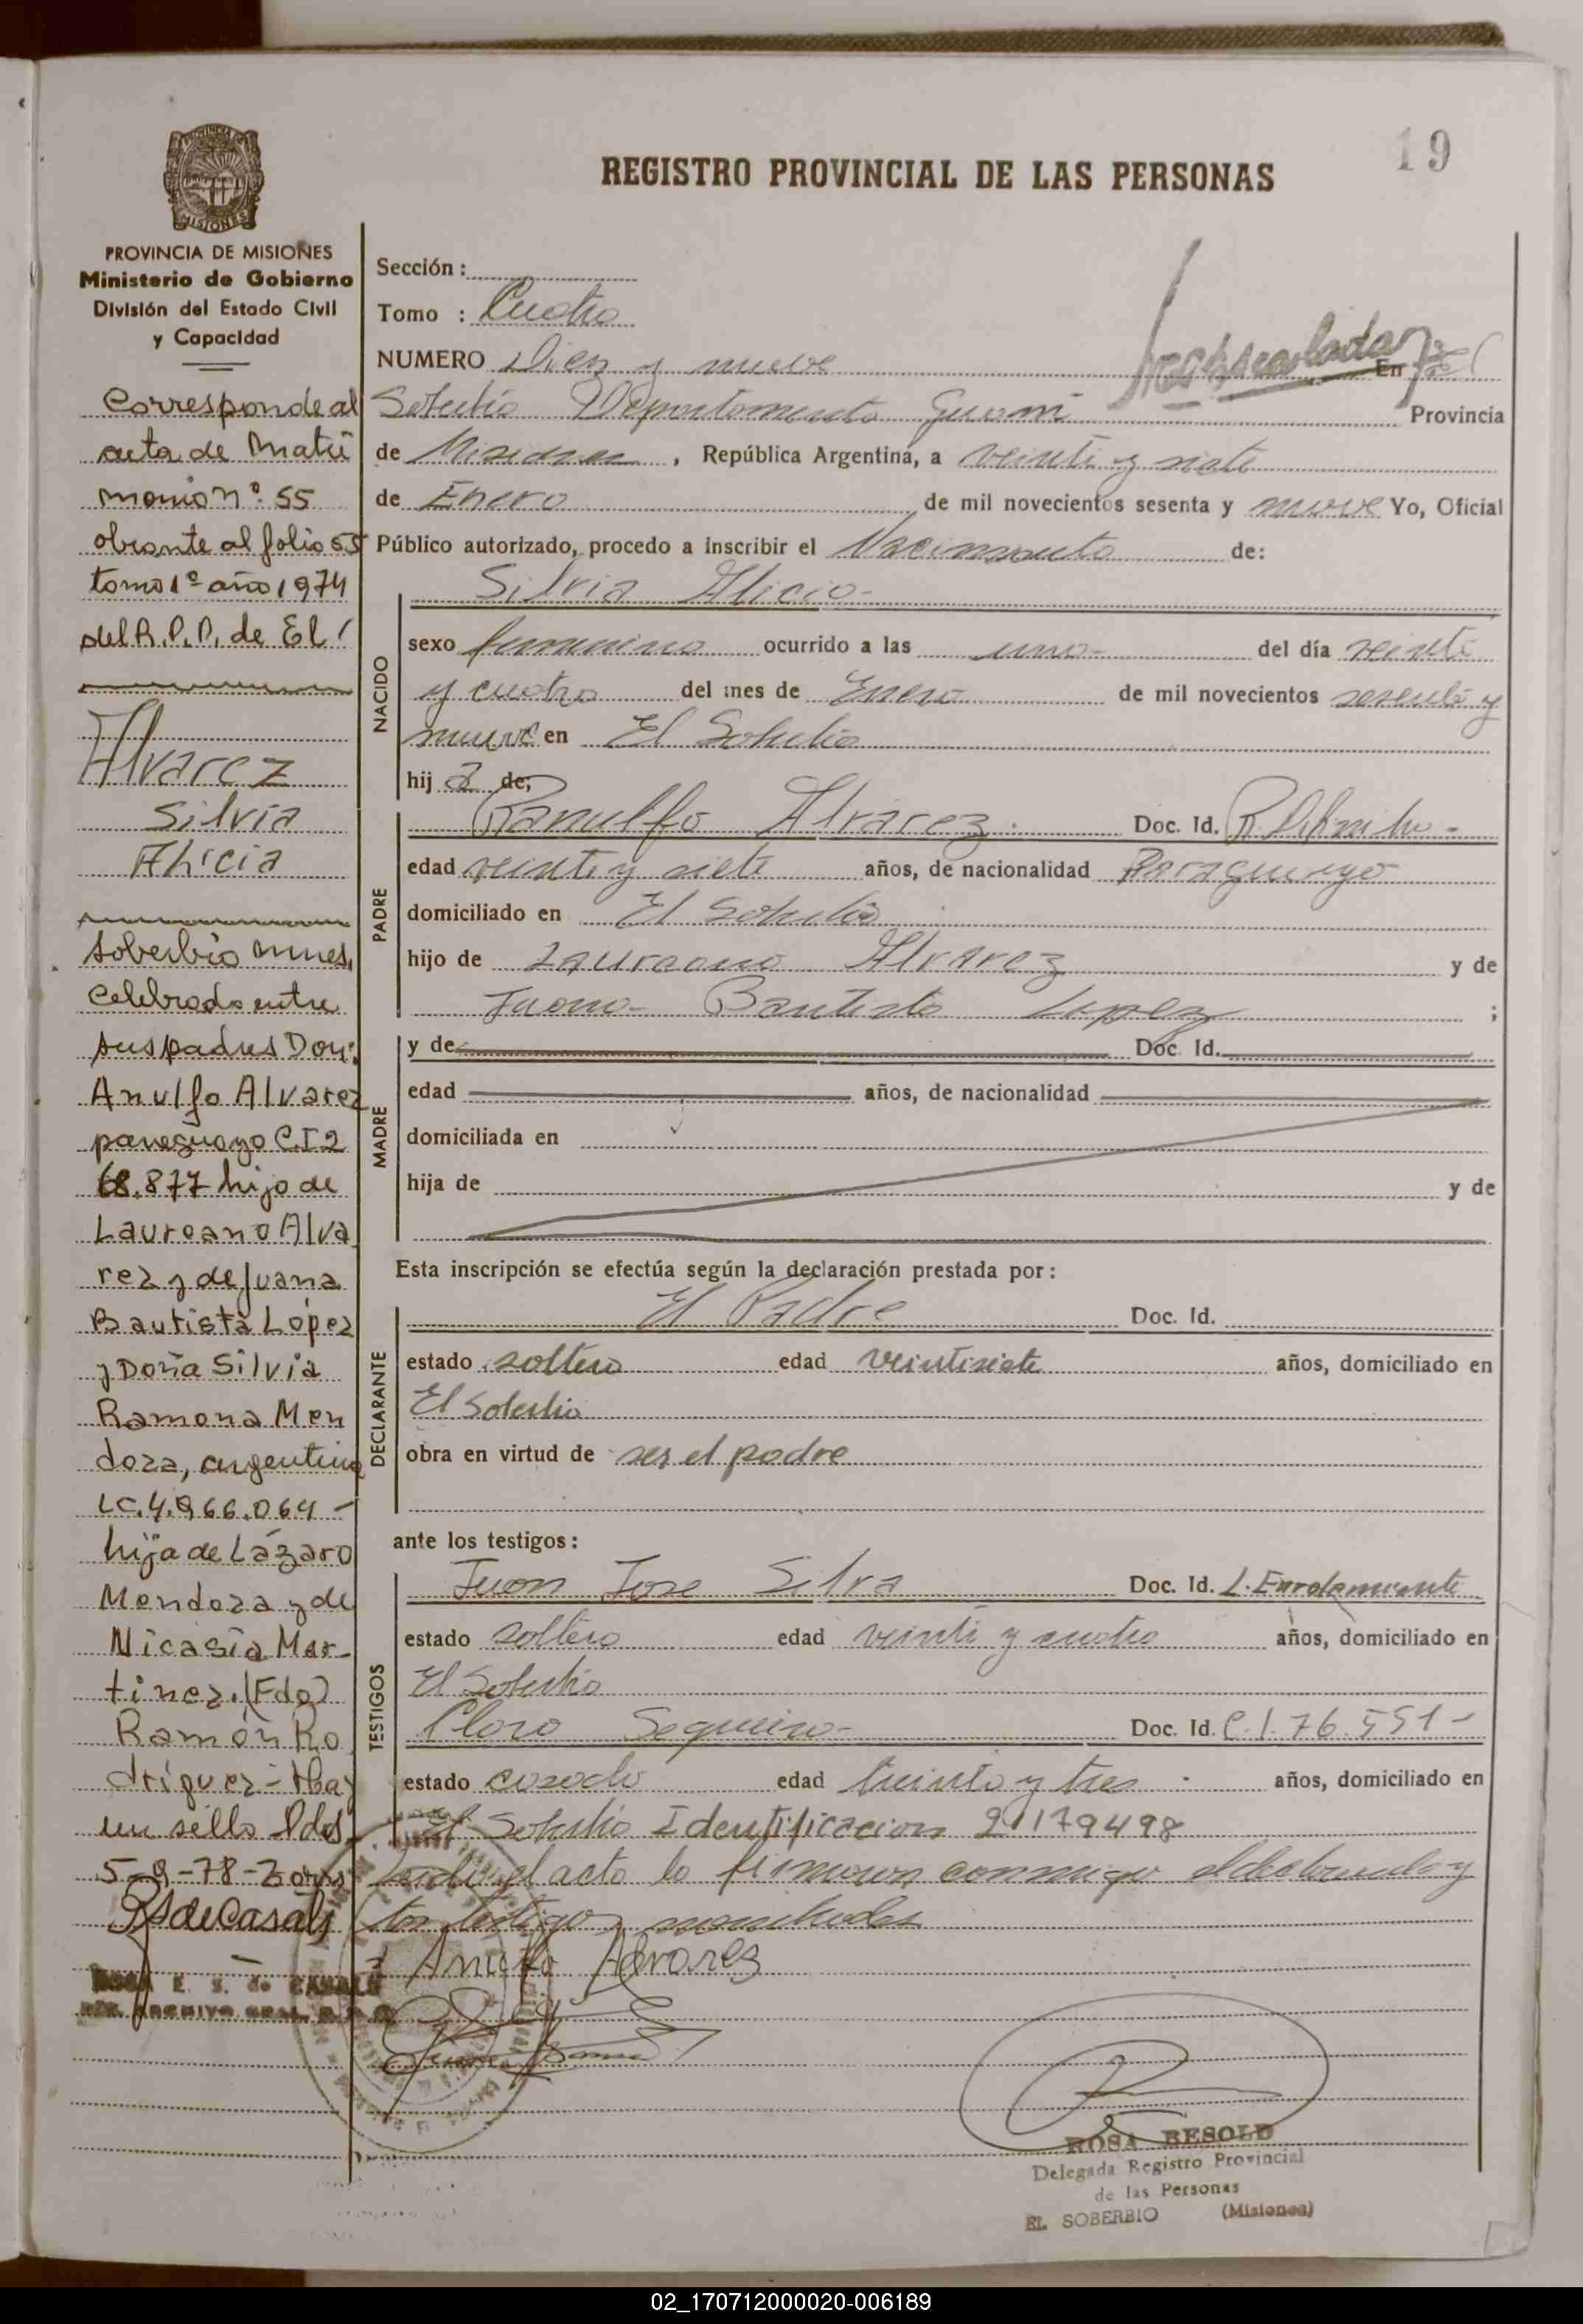 19
REGISTRO PROVINCIAL DE LAS PERSONAS
PROVINCIA DE MISIONES
PROVINCIA DE MISIONES
Ministerio de Gobierno
División del Estado Civil
y Capacidad
Corresponde al
acta de Matri
monio nº 55
obrante al folio 55
tomo 1º año 1974
del R.P.P. de El
Alvarez
Silvia
Alicia
Soberbio Mnes,
Celebrado entre
sus padres Don:
Anulfo Alvarez
paraguayo C.I 2
68.877 hijo de
Laureano Alva
rez y de Juana
Bautista López
y Doña Silvia
Ramona Men
doza, argentina
LC.4.966.064 -
hija de Lázaro
Mendoza y de
Nicasia Mar-
tinez. (Fdo)
Ramón Ro
dríguez - Hay
un sello Pdos
5-9-78-
RS de Casals
ROSA E. S. de CASALS
ARCHIVO GRAL. R.P.
Sección :
Tomo : Cuatro
NUMERO Diez y nueve En
Soberbio Departamento Guarani Provincia
de Misiones , República Argentina, a veinte y siete
de Enero de mil novecientos sesenta y nueve Yo, Oficial
Público autorizado, procedo a inscribir el Nacimiento de:
Silvia Alicia-
NACIDO
sexo femenino ocurrido a las una- del día veinte
y cuatro del mes de Enero de mil novecientos sesenta y
nueve en El Soberbio
hij a de;
PADRE
Ranulfo Alvarez. Doc. Id.
edad veinte y siete años, de nacionalidad Paraguayo
domiciliado en El Soberbio
hijo de Laureano Alvarez y de
Juana- Bautista Lopez ;
MADRE
y de Doc. Id.
edad años, de nacionalidad
domiciliada en
hija de y de
Esta inscripción se efectúa según la declaración prestada por:
DECLARANTE
El Padre Doc. Id.
estado soltero edad veintisiete años, domiciliado en
El Soberbio
obra en virtud de ser el padre
ante los testigos:
TESTIGOS
Juan Jose Silva Doc. Id. L. Enrolamiento
estado soltero edad veinte y cuatro años, domiciliado en
El Soberbio
Claro Sequeira- Doc. Id. C.I. 76.551-
estado casado edad treinta y tres años, domiciliado en
El Soberbio Identificacion 21179498
el acta la firmaron conmigo el declarante y
los testigos nombrados
Anulfo Alvarez
ROSA BESOLD
Delegada Registro Provincial
de las Personas
EL SOBERBIO (Misiones)
02_170712000020-006189